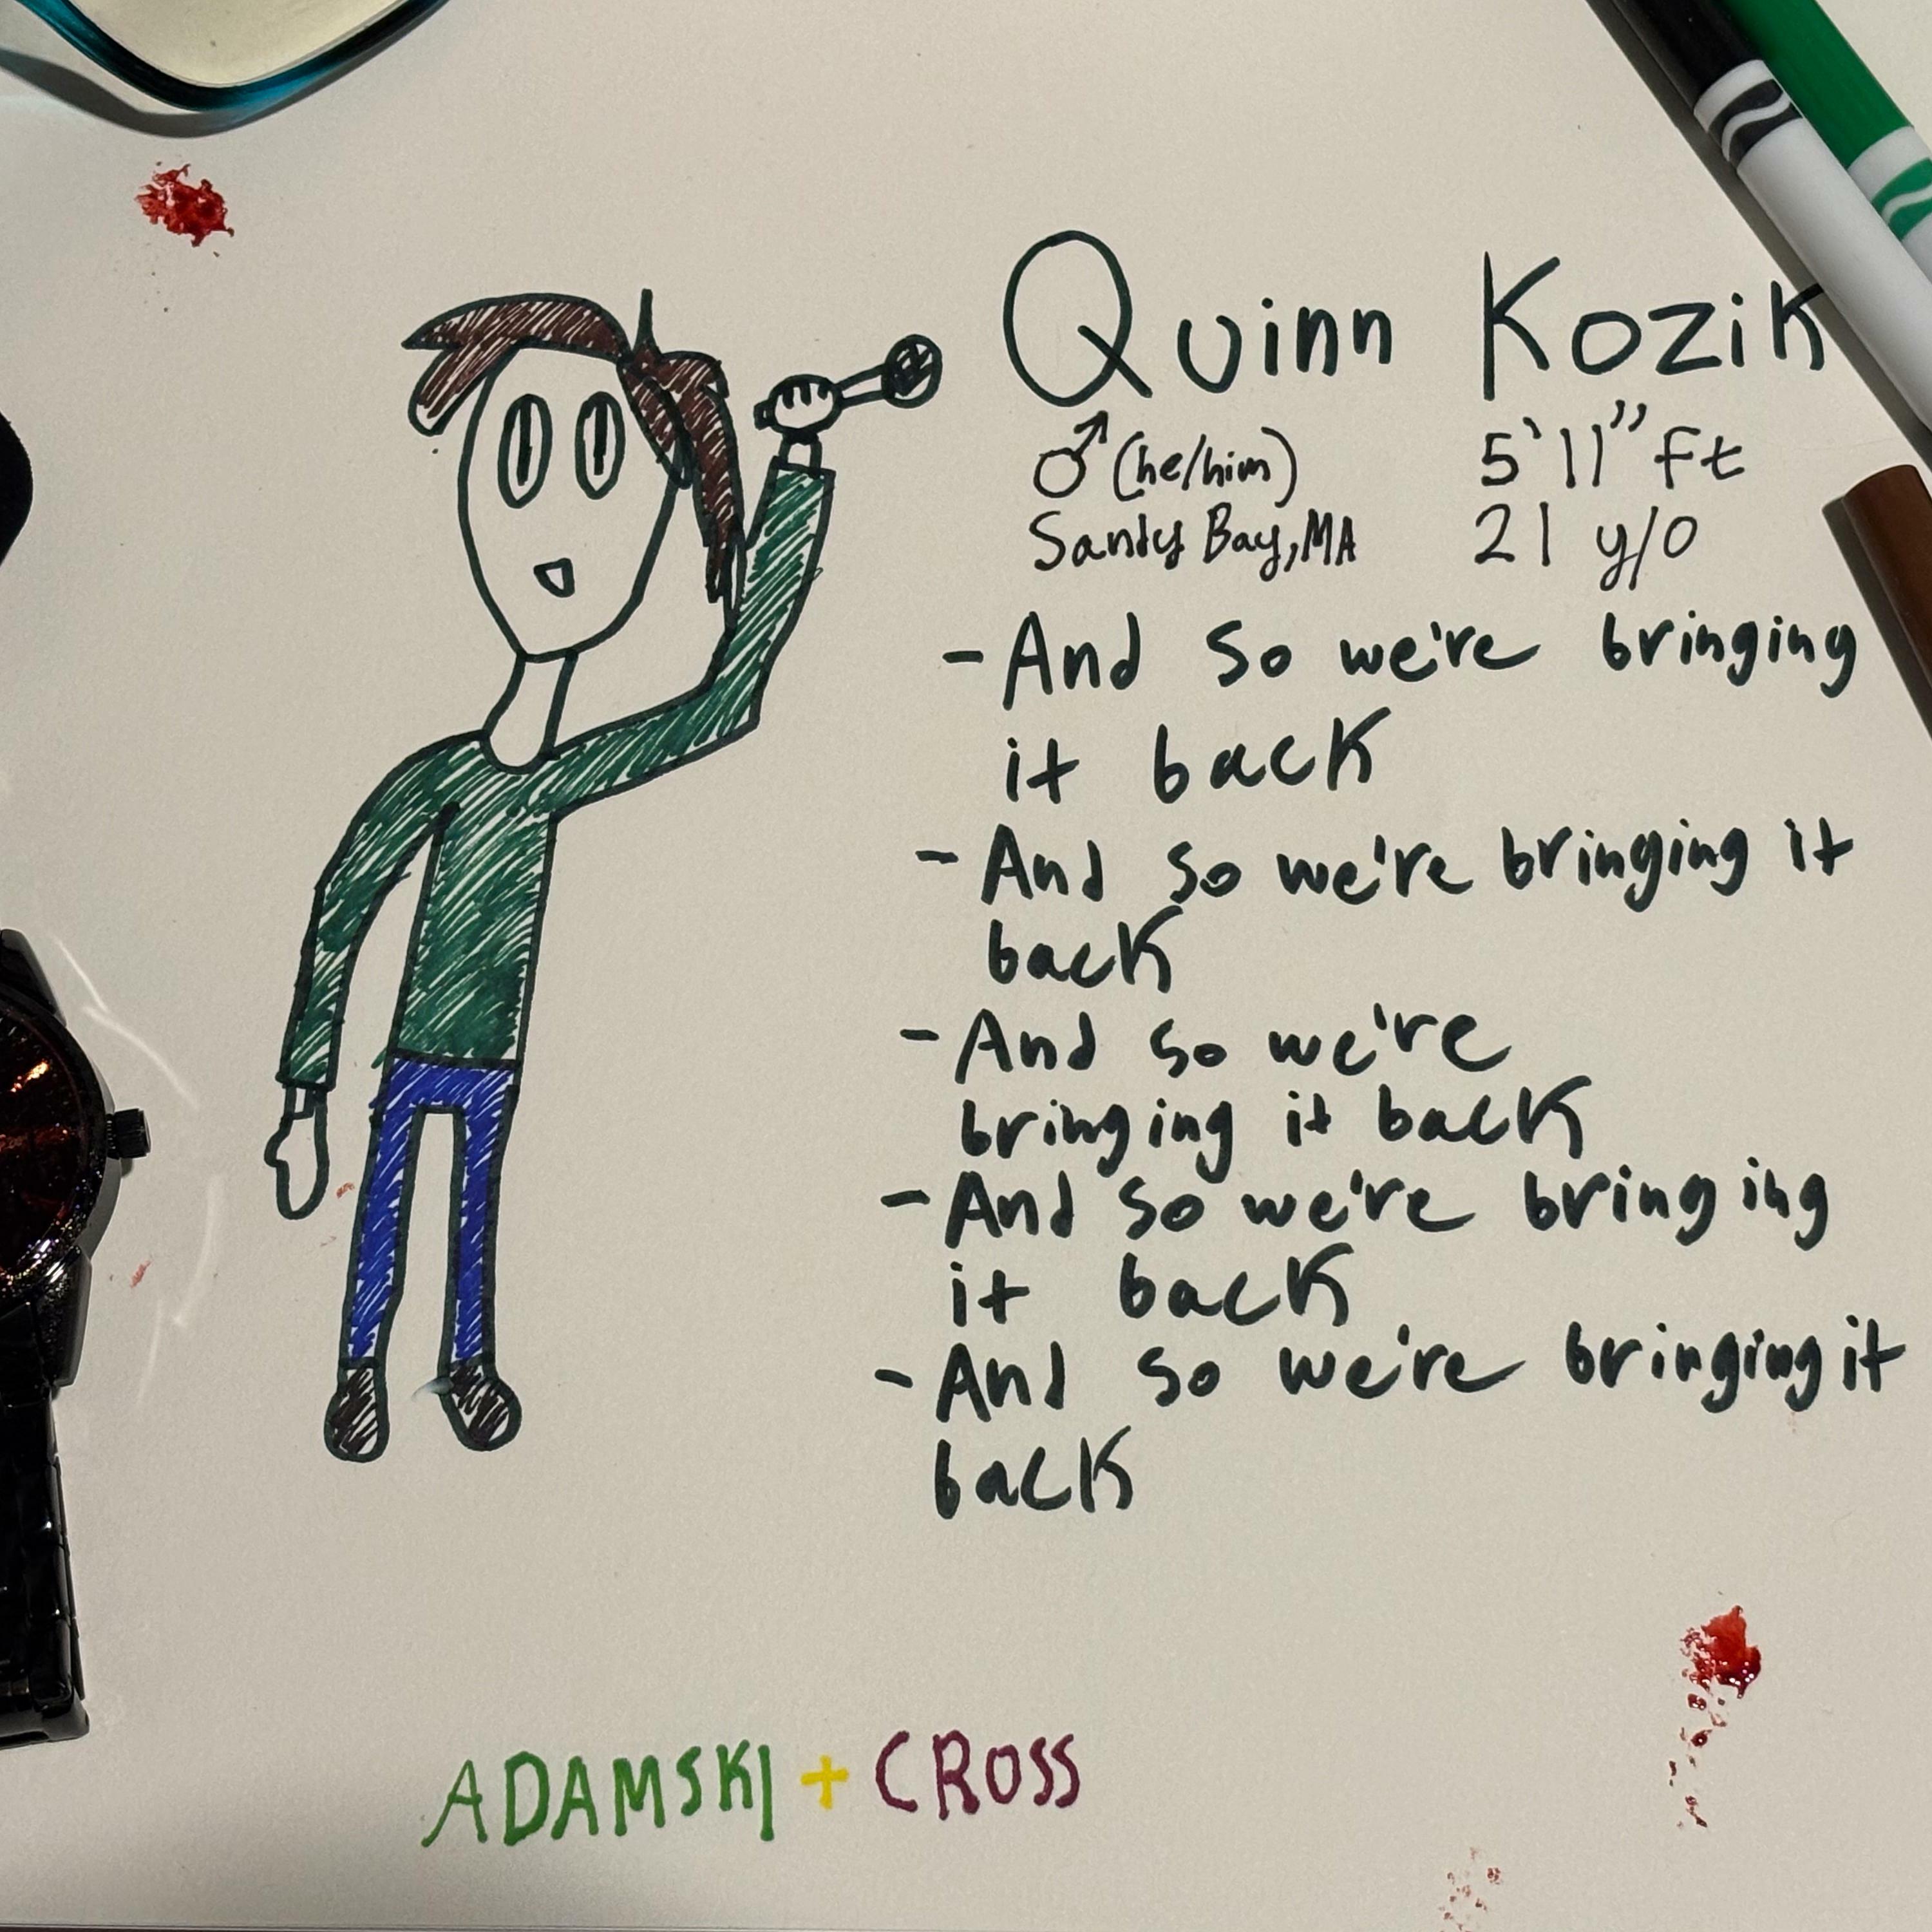 Quinn Kozik
♂(he/him) 5'11" ft
Sandy Bay, MA 21 y/o
- And so we're bringing
it back
- And so we're bringing it
back
- And so we're
bringing it back
- And so we're bringing
it back
- And so we're bringing it
back
ADAMSKI + CROSS